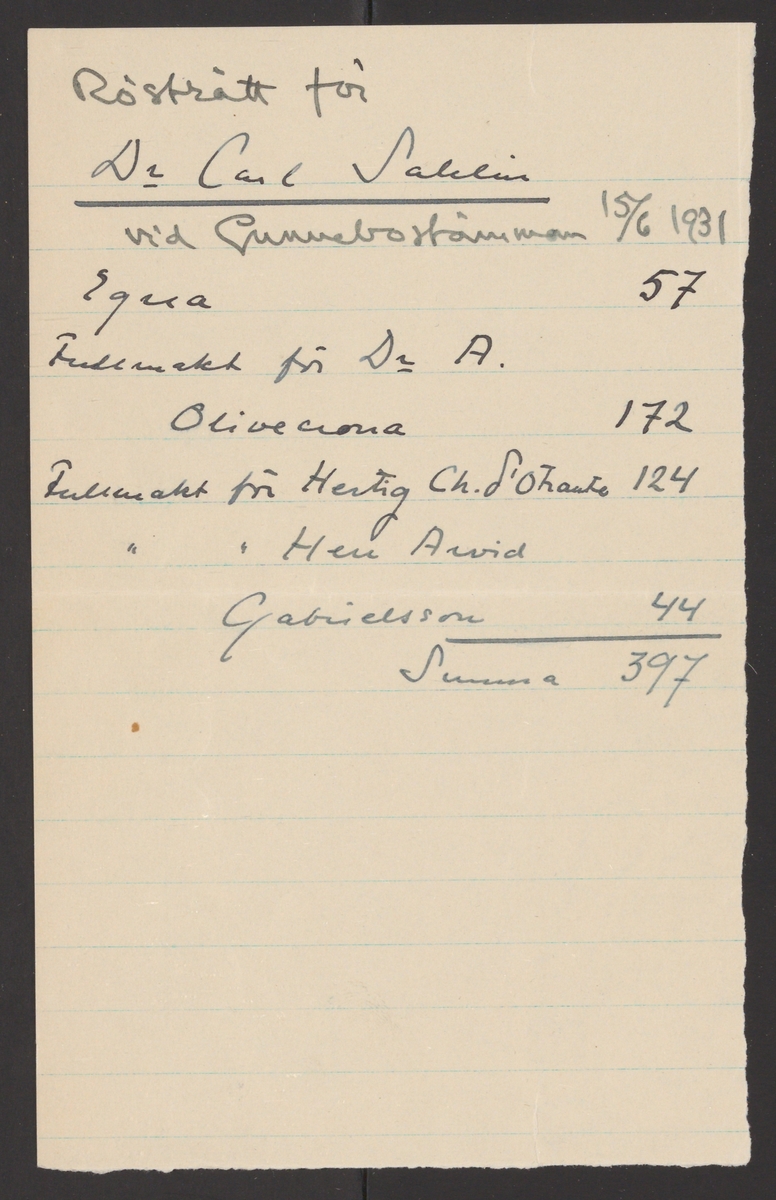 Rösträtt för
Dr Carl Sahlin
vid Gunnebostämman 15/6 1931
Egna 57
Fullmakt för Dr A.
Olivecrona 172
Fullmakt för Hertig Ch. d'Otrante 124
" " Herr Arvid
Gabrielsson 44
Summa 397